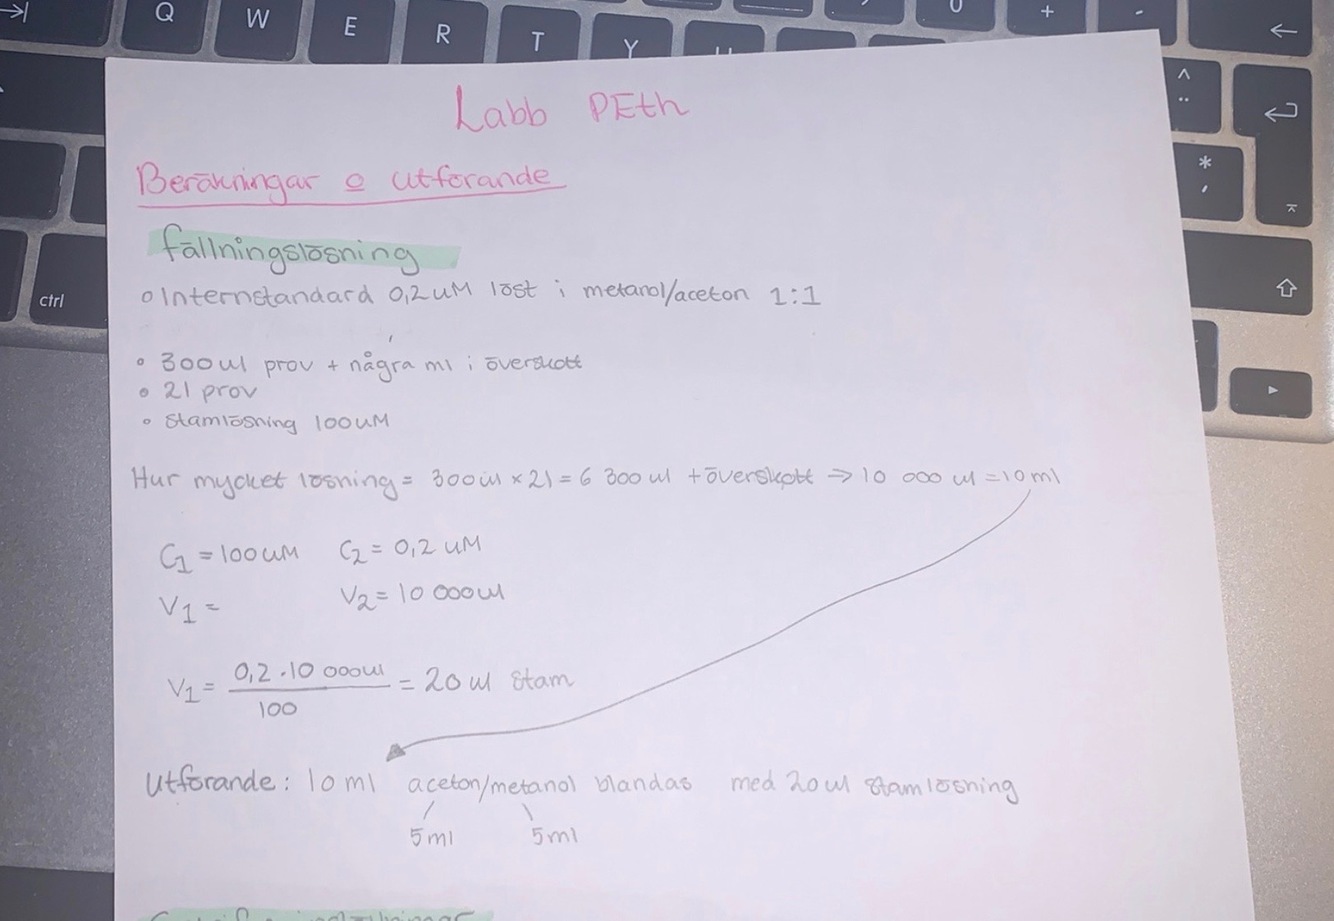 Q W E R T Y U
0 + -
^
¨
*
'
ctrl
Labb PEth
Beräkningar o utförande
fällningslösning
o Internstandard 0,2 uM löst i metanol/aceton 1:1
o 300 ul prov + några ml i överskott
o 21 prov
o Stamlösning 100 uM
Hur mycket lösning = 300 ul × 21 = 6 300 ul + överskott → 10 000 ul = 10 ml
C1 = 100 uM C2 = 0,2 uM
V1 = V2 = 10 000 ul
V1 = 0,2 · 10 000 ul / 100 = 20 ul stam
Utförande: 10 ml aceton/metanol blandas med 20 ul stamlösning
5 ml 5 ml